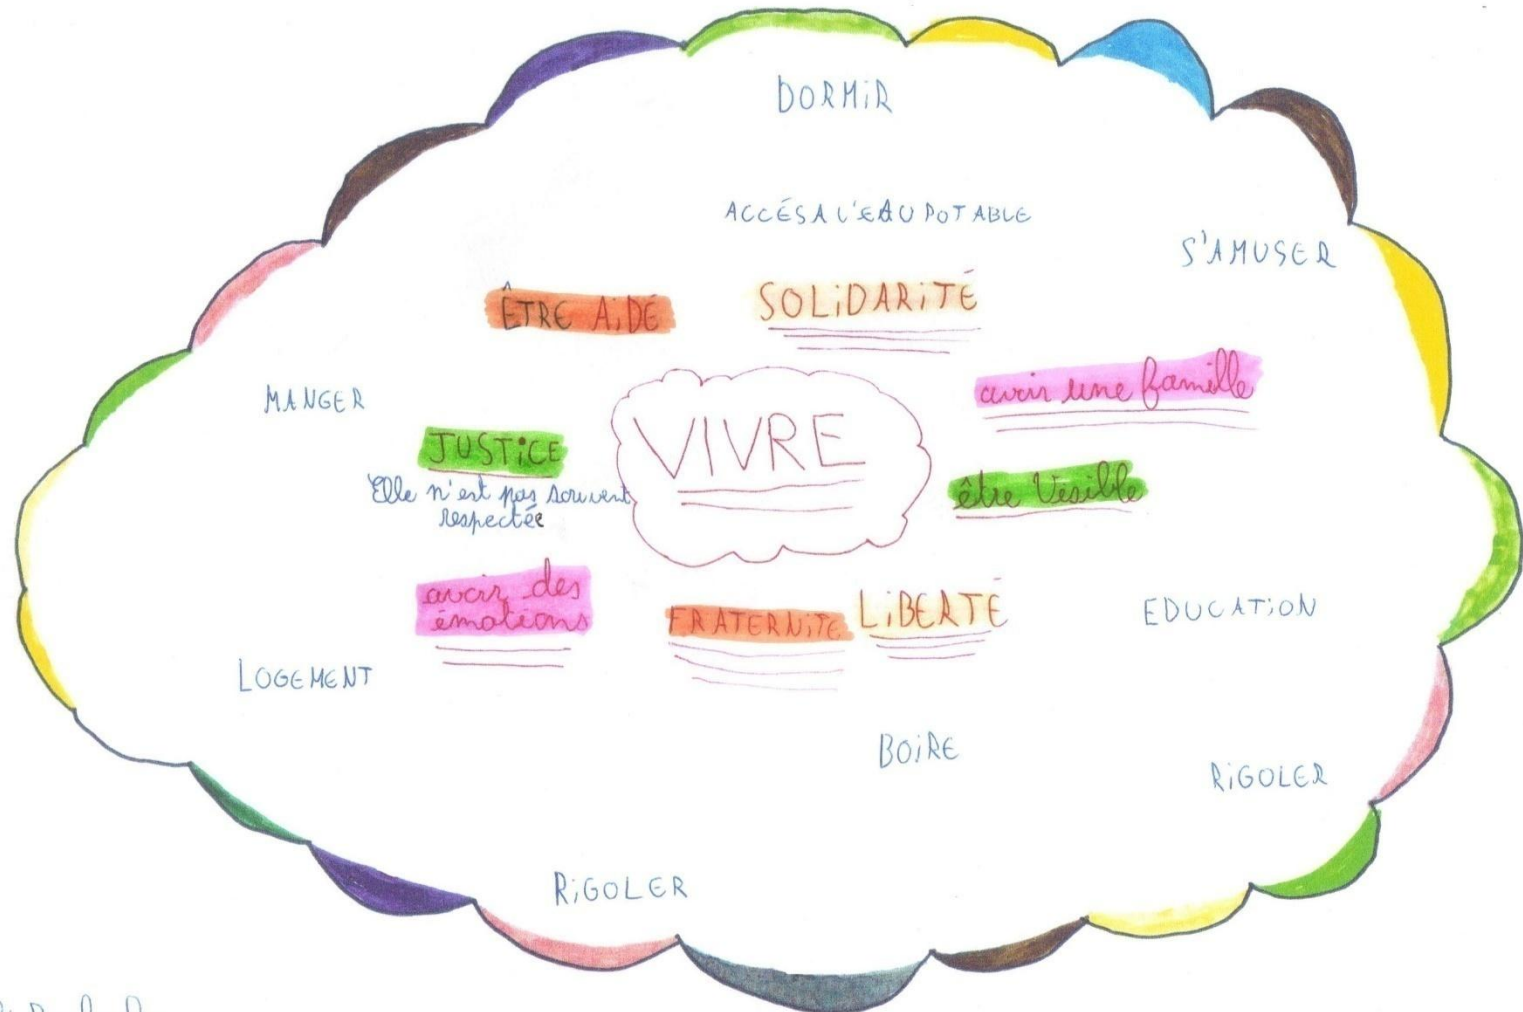 DORMIR
ACCÉS A L'EAU POTABLE
S'AMUSER
ÊTRE AIDÉ
SOLIDARITÉ
avoir une famille
MANGER
JUSTICE
Elle n'est pas souvent
respectée
VIVRE
être Visible
avoir des
émotions
FRATERNITÉ
LIBERTÉ
EDUCATION
LOGEMENT
BOIRE
RIGOLER
RIGOLER